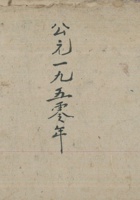 公元一九五零年